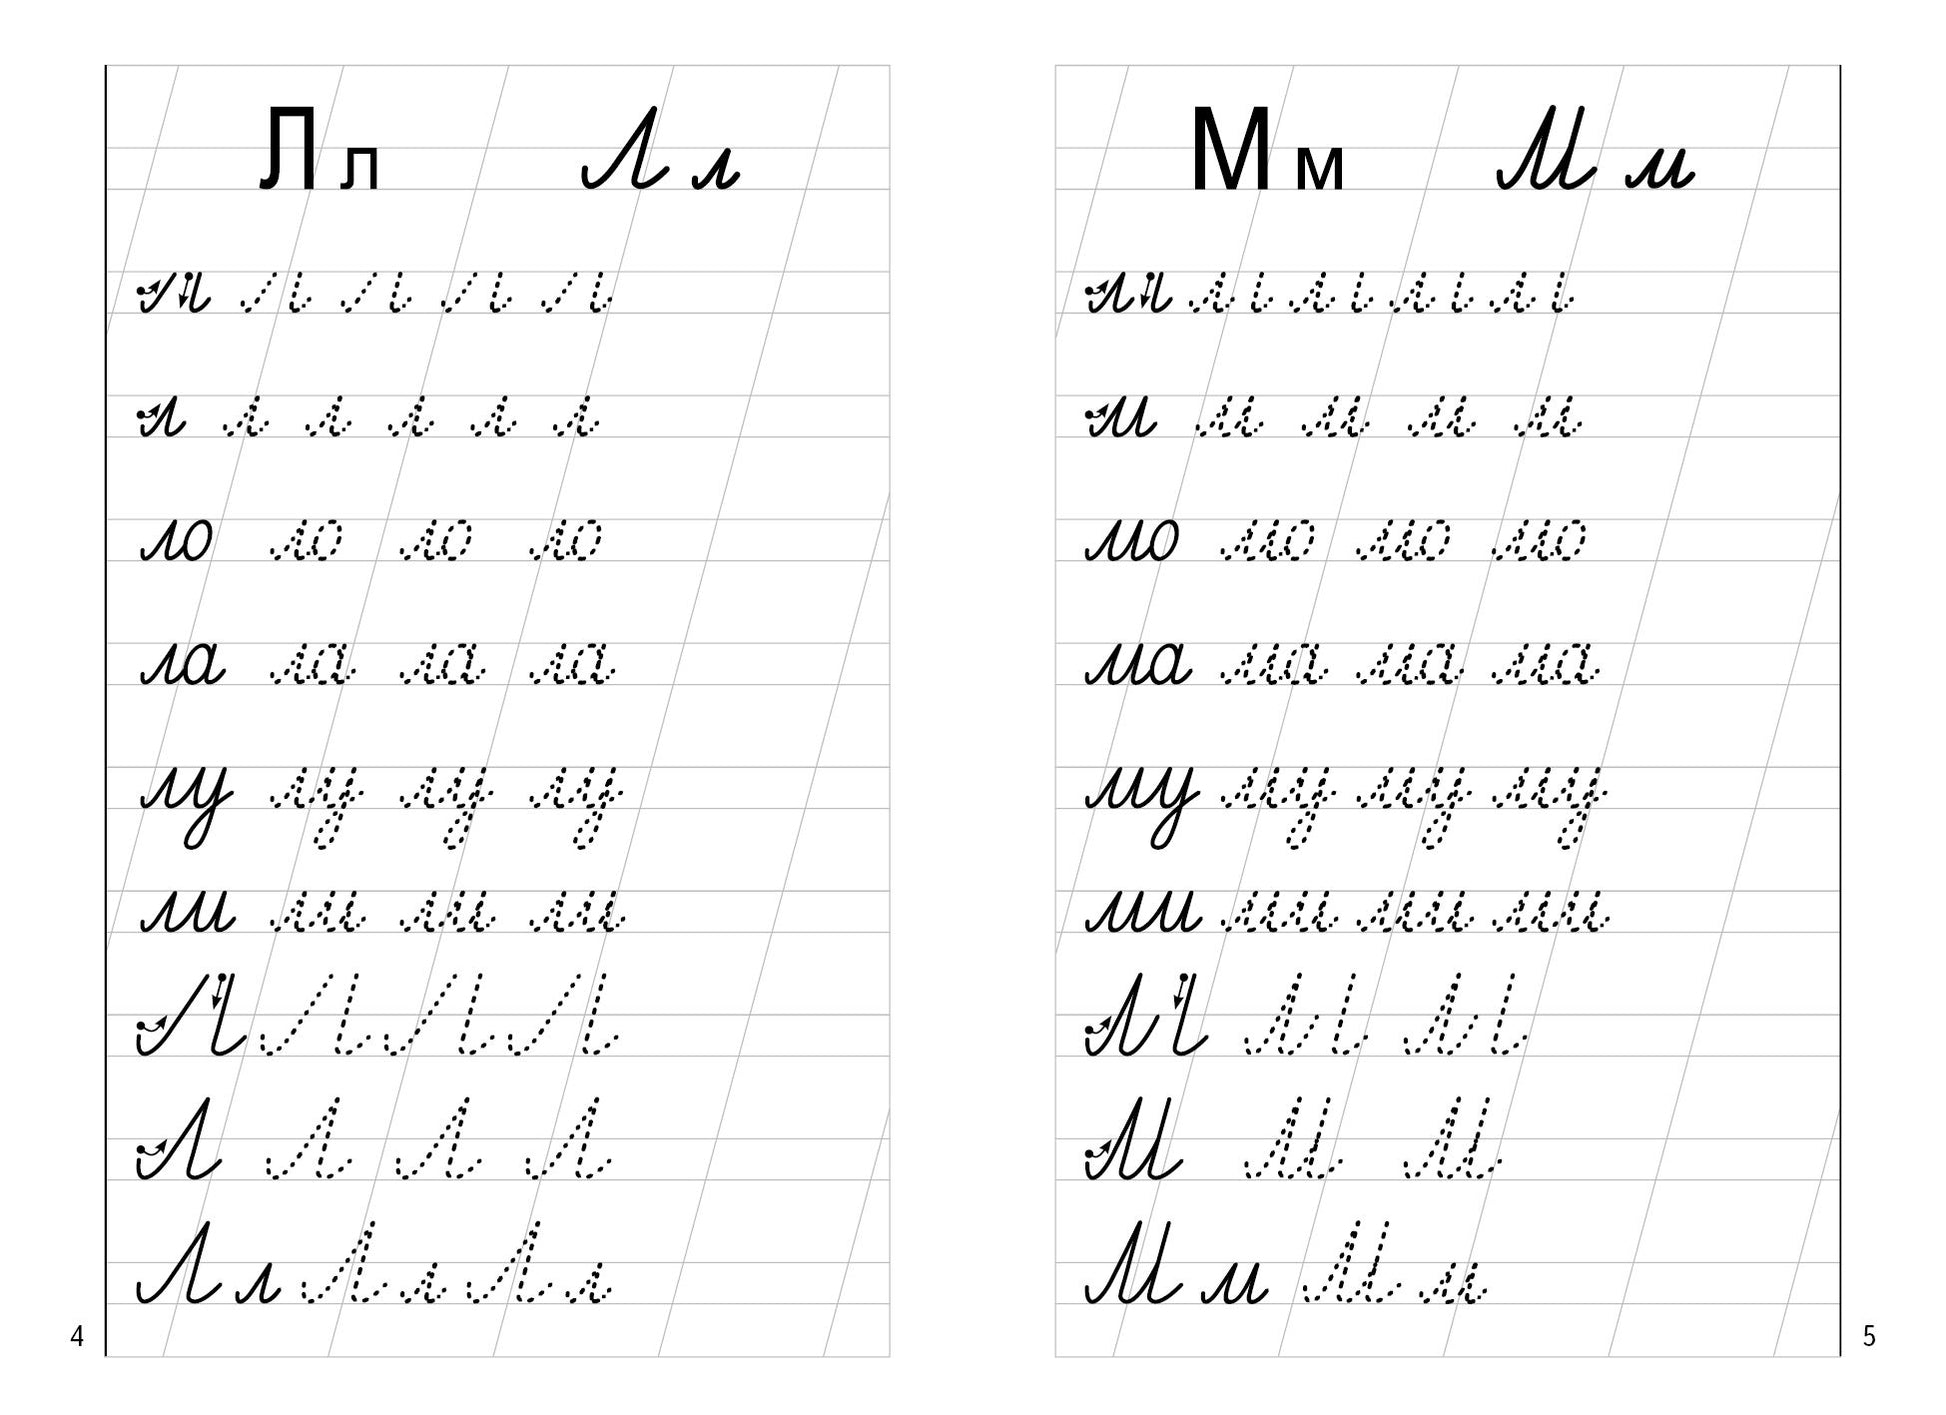 Л л Л л
л л л л л л
ло ло ло ло
ла ла ла ла
лу лу лу лу
ли ли ли ли
Л Л Л Л
Л л Л л Л л
4
М м М м
м м м м м
мо мо мо мо
ма ма ма ма
му му му му
ми ми ми ми
М М М
М м М м
5